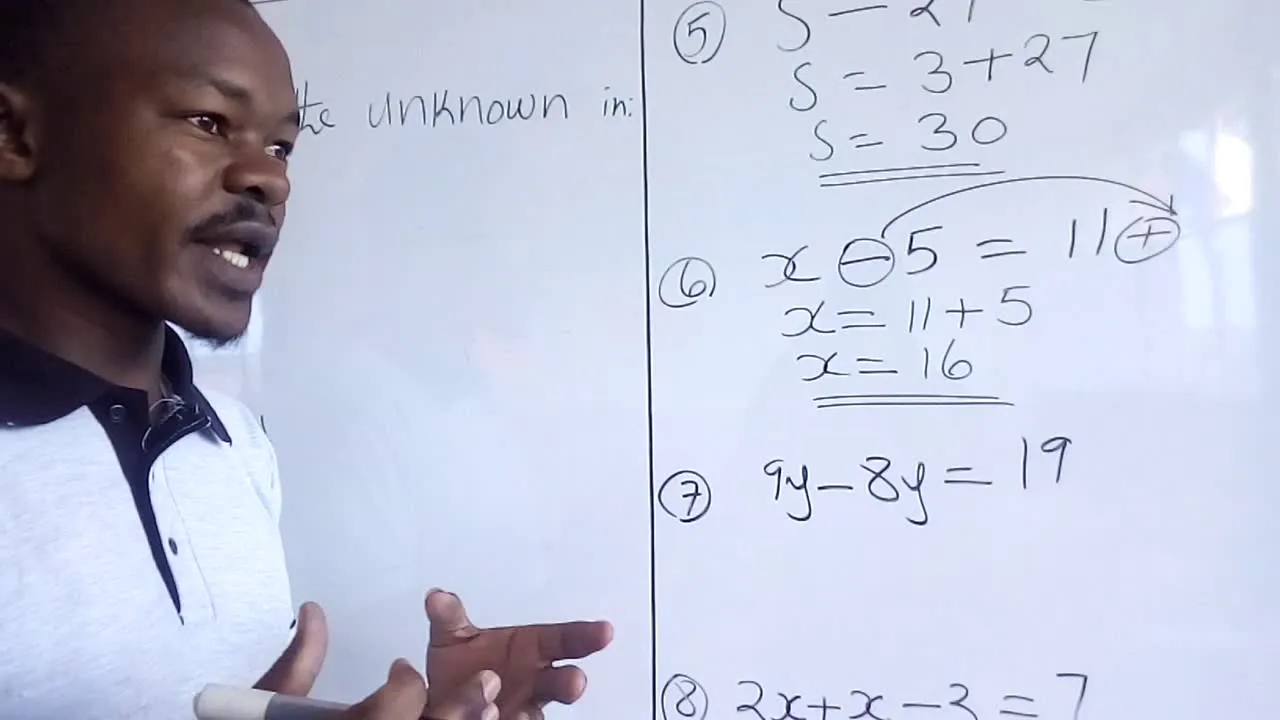 the unknown in:
⑤ S - 27
S = 3 + 27
S = 30
⑥ x - 5 = 11 +
x = 11 + 5
x = 16
⑦ 9y - 8y = 19
⑧ 2x + x - 2 = 7